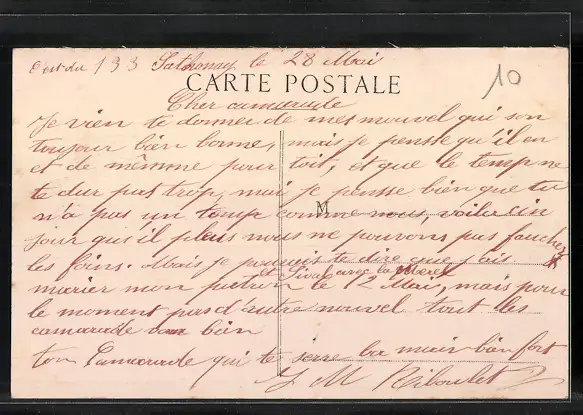 C'est du 133 Sathonay le 28 Mai
10
CARTE POSTALE
Cher camarade
Je vien te donner de mes nouvel qui son
toujour bien bonne, mais je pensse qu'il en
et de mêmme pour toit, et que le temp ne
te dur pas trop, mai je pensse bien que tu
n'a pas un temp comme nous, voila cin
M
jour qu'il pleus nous ne pouvons pas faucher
les foins. Mais je te dire que j'ais
et Livac avec la Merel
marier mon patron le 12 Mai, mais pour
le moment pas d'autre nouvel tout les
camarade bien
ton Camarade qui te serre la main bien fort
J M Riboulet